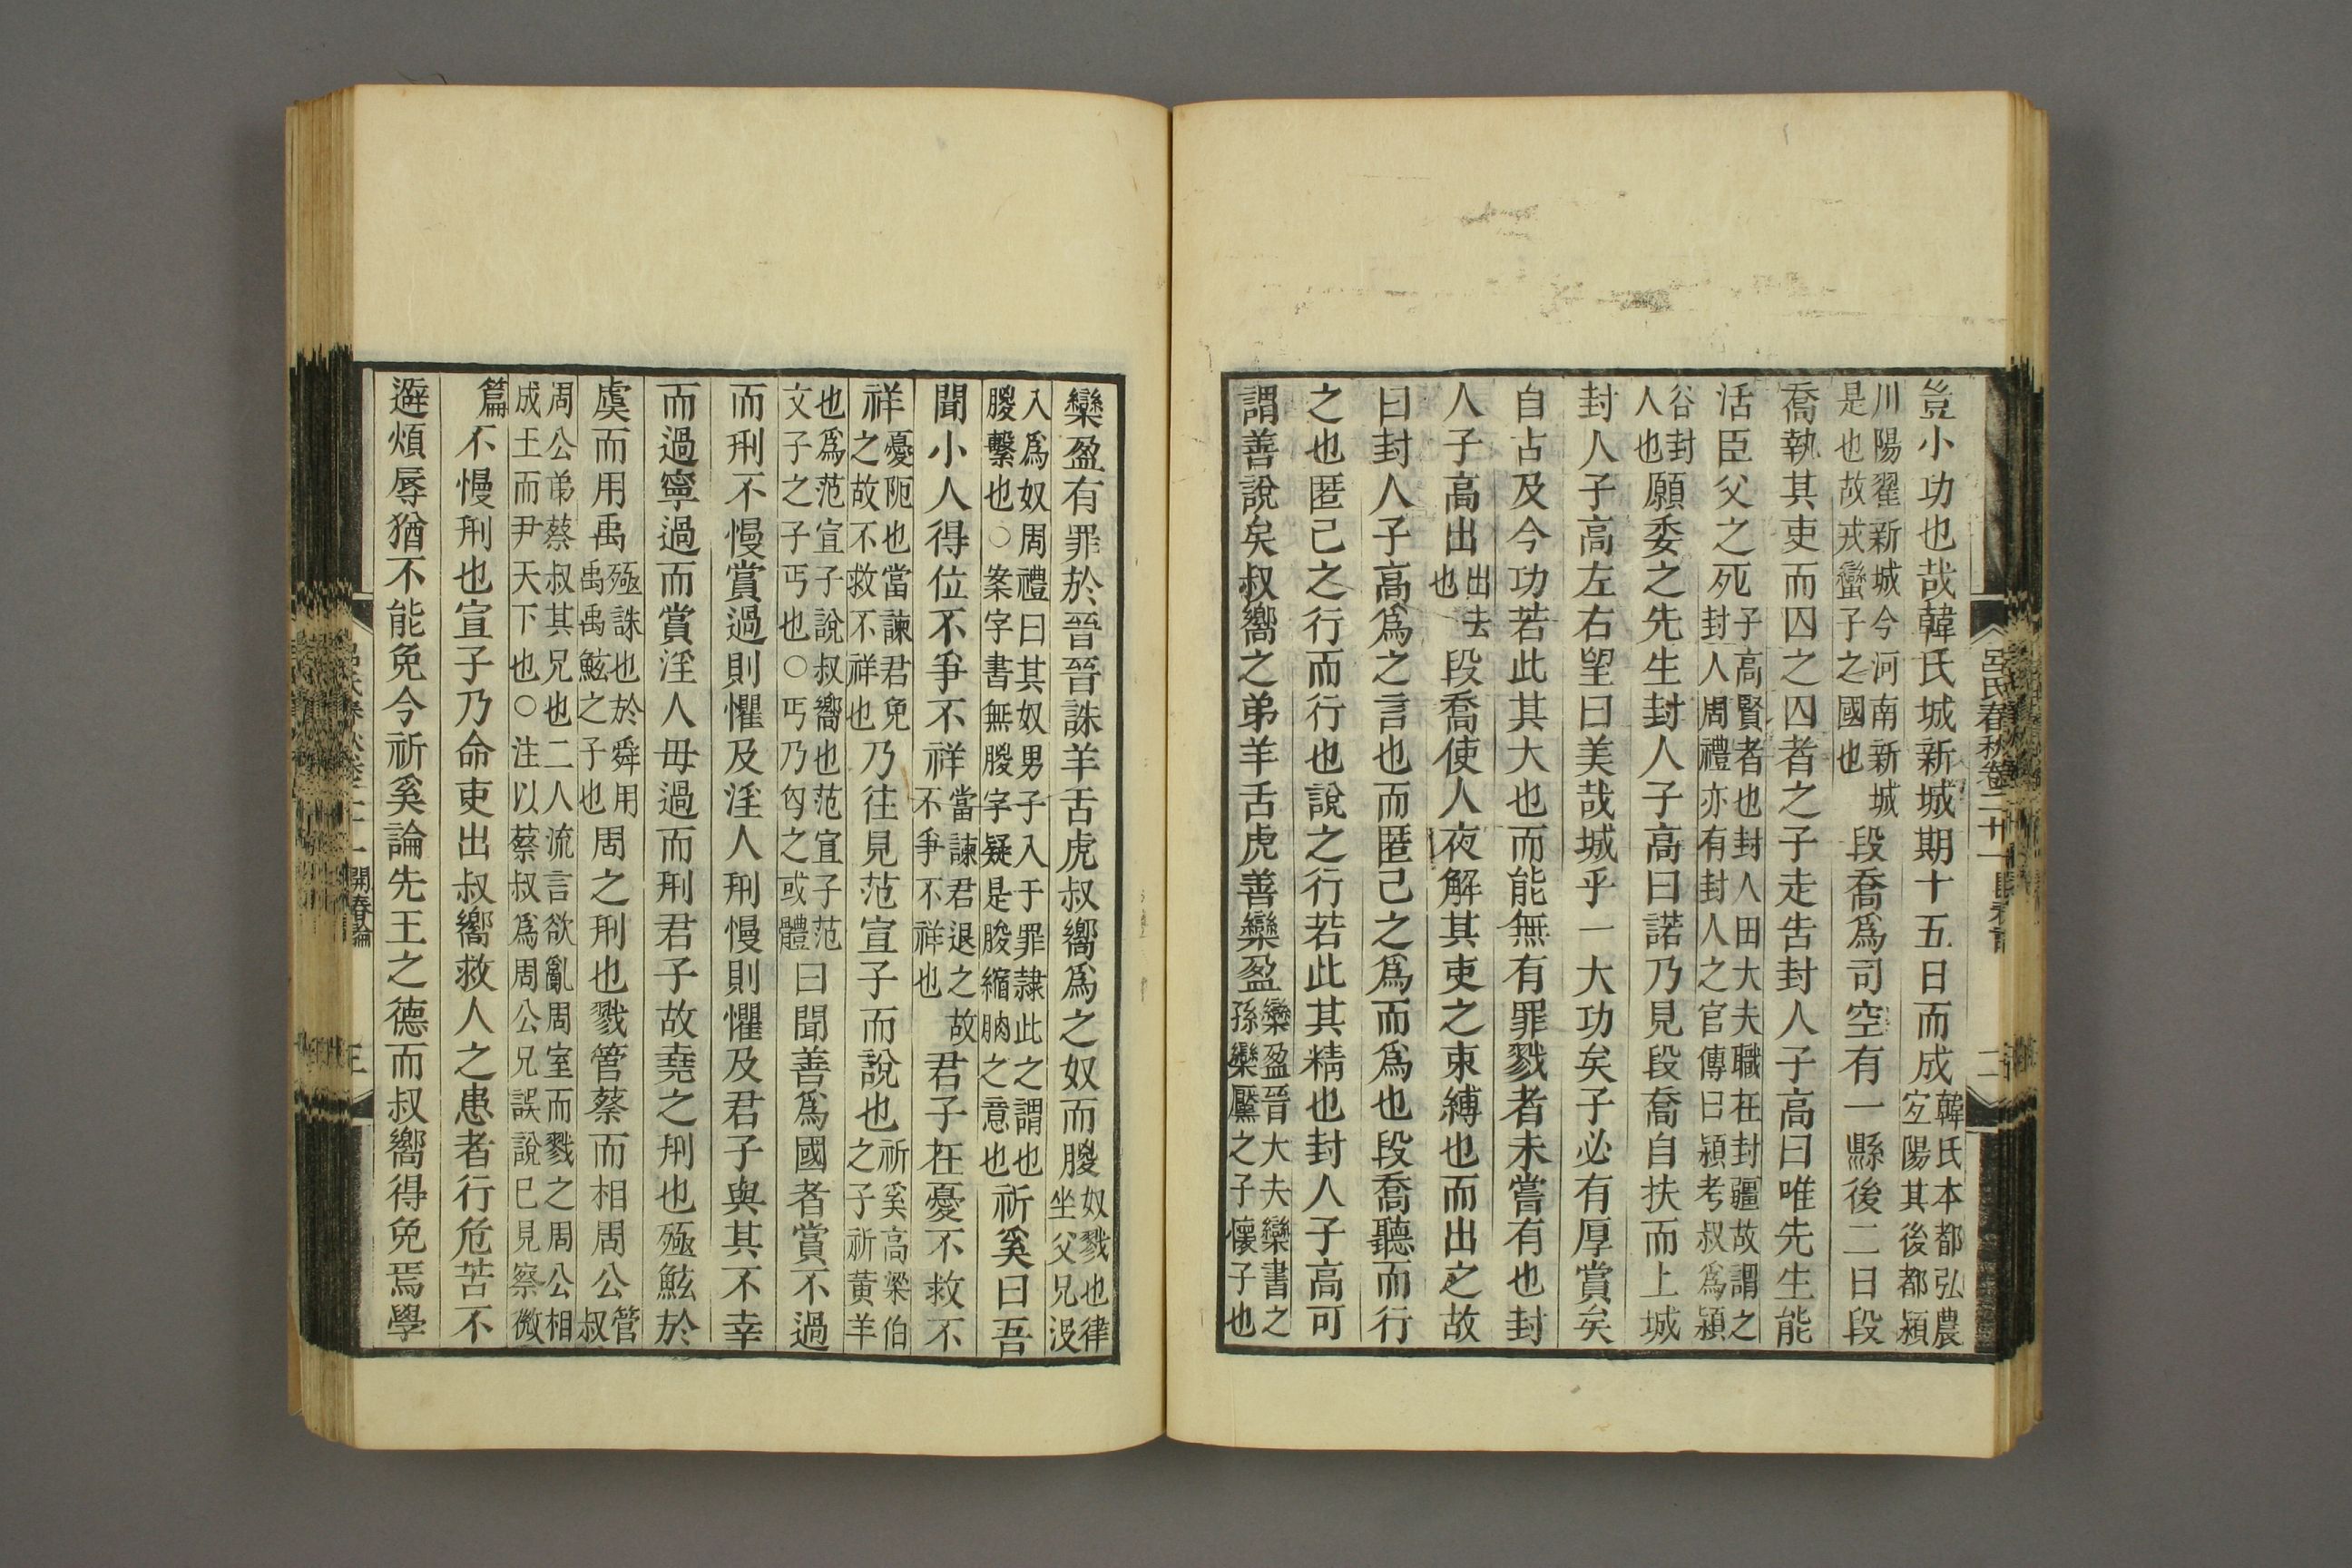 豈小功也哉韓氏城新城期十五日而成韓氏本都弘農宜陽其後都潁
川陽翟新城今河南新城是也故戎蠻子之國也段喬爲司空有一縣後二日段
喬執其吏而囚之囚者之子走告封人子高曰唯先生能
活臣父之死子高賢者也封人田大夫職在封疆故謂之封人周禮亦有封人之官傳曰潁考叔爲潁
谷封人也願委之先生封人子高曰諾乃見段喬自扶而上城
封人子高左右望曰美哉城乎一大功矣子必有厚賞矣
自古及今功若此其大也而能無有罪戮者未嘗有也封
人子高出出去也段喬使人夜解其吏之束縛也而出之故
曰封人子高爲之言也而匿己之爲而爲也段喬聽而行
之也匿己之行而行也說之行若此其精也封人子高可
謂善說矣叔嚮之弟羊舌虎善欒盈欒盈晉大夫欒書之孫欒黶之子懷子也
呂氏春秋卷二十一 開春論
二
欒盈有罪於晉晉誅羊舌虎叔嚮爲之奴而朡奴戮也律坐父兄沒
入爲奴周禮曰其奴男子入于罪隸此之謂也朡繫也○案字書無朡字疑是朘縮朒之意也祈奚曰吾
聞小人得位不爭不祥當諫君退之故不爭不祥也君子在憂不救不
祥憂阨也當諫君免之故不救不祥也乃往見范宣子而說也祈奚高梁伯之子祈黃羊
也爲范宣子說叔嚮也范宣子范文子之子丐也○丐乃匄之或體曰聞善爲國者賞不過
而刑不慢賞過則懼及淫人刑慢則懼及君子與其不幸
而過寧過而賞淫人毋過而刑君子故堯之刑也殛鮌於
虞而用禹殛誅也於舜用禹禹鮌之子也周之刑也戮管蔡而相周公管叔
周公弟蔡叔其兄也二人流言欲亂周室而戮之周公相成王而尹天下也○注以蔡叔爲周公兄誤說已見察微
篇不慢刑也宣子乃命吏出叔嚮救人之患者行危苦不
避煩辱猶不能免今祈奚論先王之德而叔嚮得免焉學
開春論
三